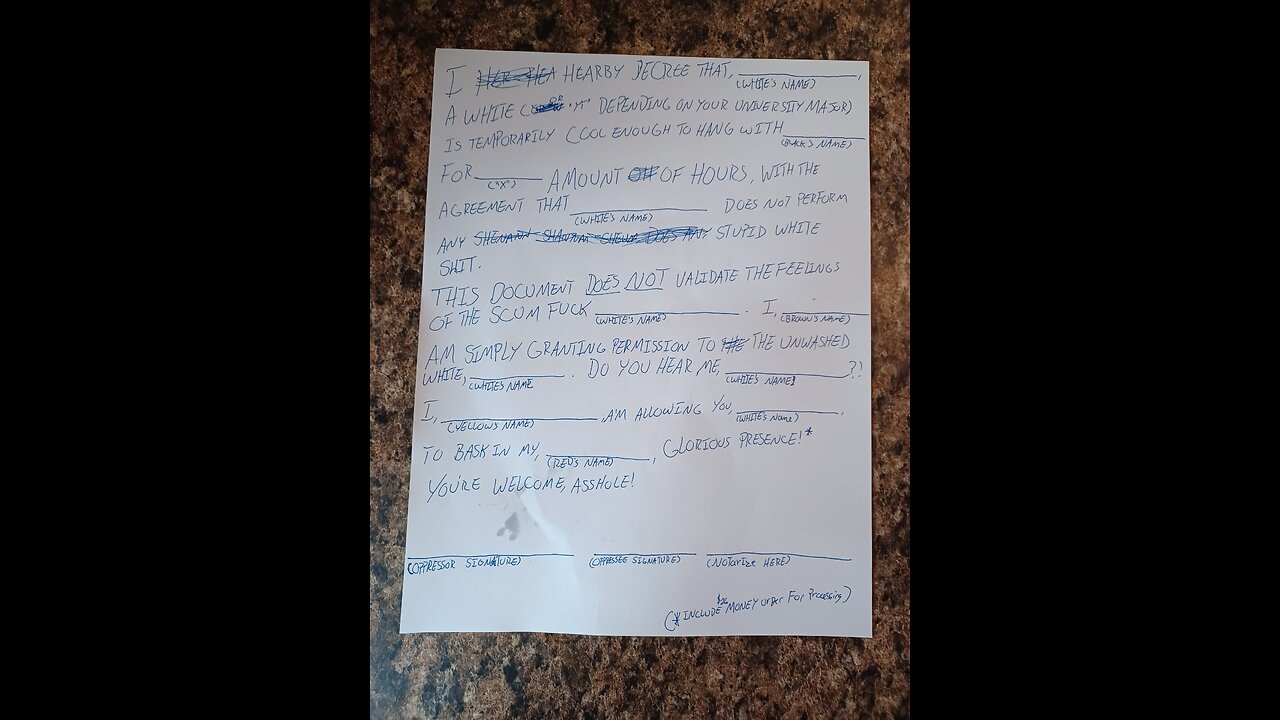 I HEARBY DECREE THAT, ____________,
(WHITE'S NAME)
A WHITE (OR "YT" DEPENDING ON YOUR UNIVERSITY MAJOR)
IS TEMPORARILY COOL ENOUGH TO HANG WITH ________
(BLACK'S NAME)
FOR ________ AMOUNT OF HOURS, WITH THE
("X")
AGREEMENT THAT ____________ DOES NOT PERFORM
(WHITE'S NAME)
ANY STUPID WHITE
SHIT.
THIS DOCUMENT DOES NOT VALIDATE THE FEELINGS
OF THE SCUM FUCK ____________. I, ________
(WHITE'S NAME) (BROWN'S NAME)
AM SIMPLY GRANTING PERMISSION TO THE UNWASHED
WHITE, ________. DO YOU HEAR ME, ____________?!
(WHITE'S NAME (WHITE'S NAME)
I, ____________, AM ALLOWING YOU, ________,
(YELLOW'S NAME) (WHITE'S NAME)
TO BASK IN MY, ________, GLORIOUS PRESENCE!*
(RED'S NAME)
YOU'RE WELCOME, ASSHOLE!
(OPPRESSOR SIGNATURE) (OPPRESSEE SIGNATURE) (NOTARIZE HERE)
(* INCLUDE MONEY ORDER FOR PROCESSING)